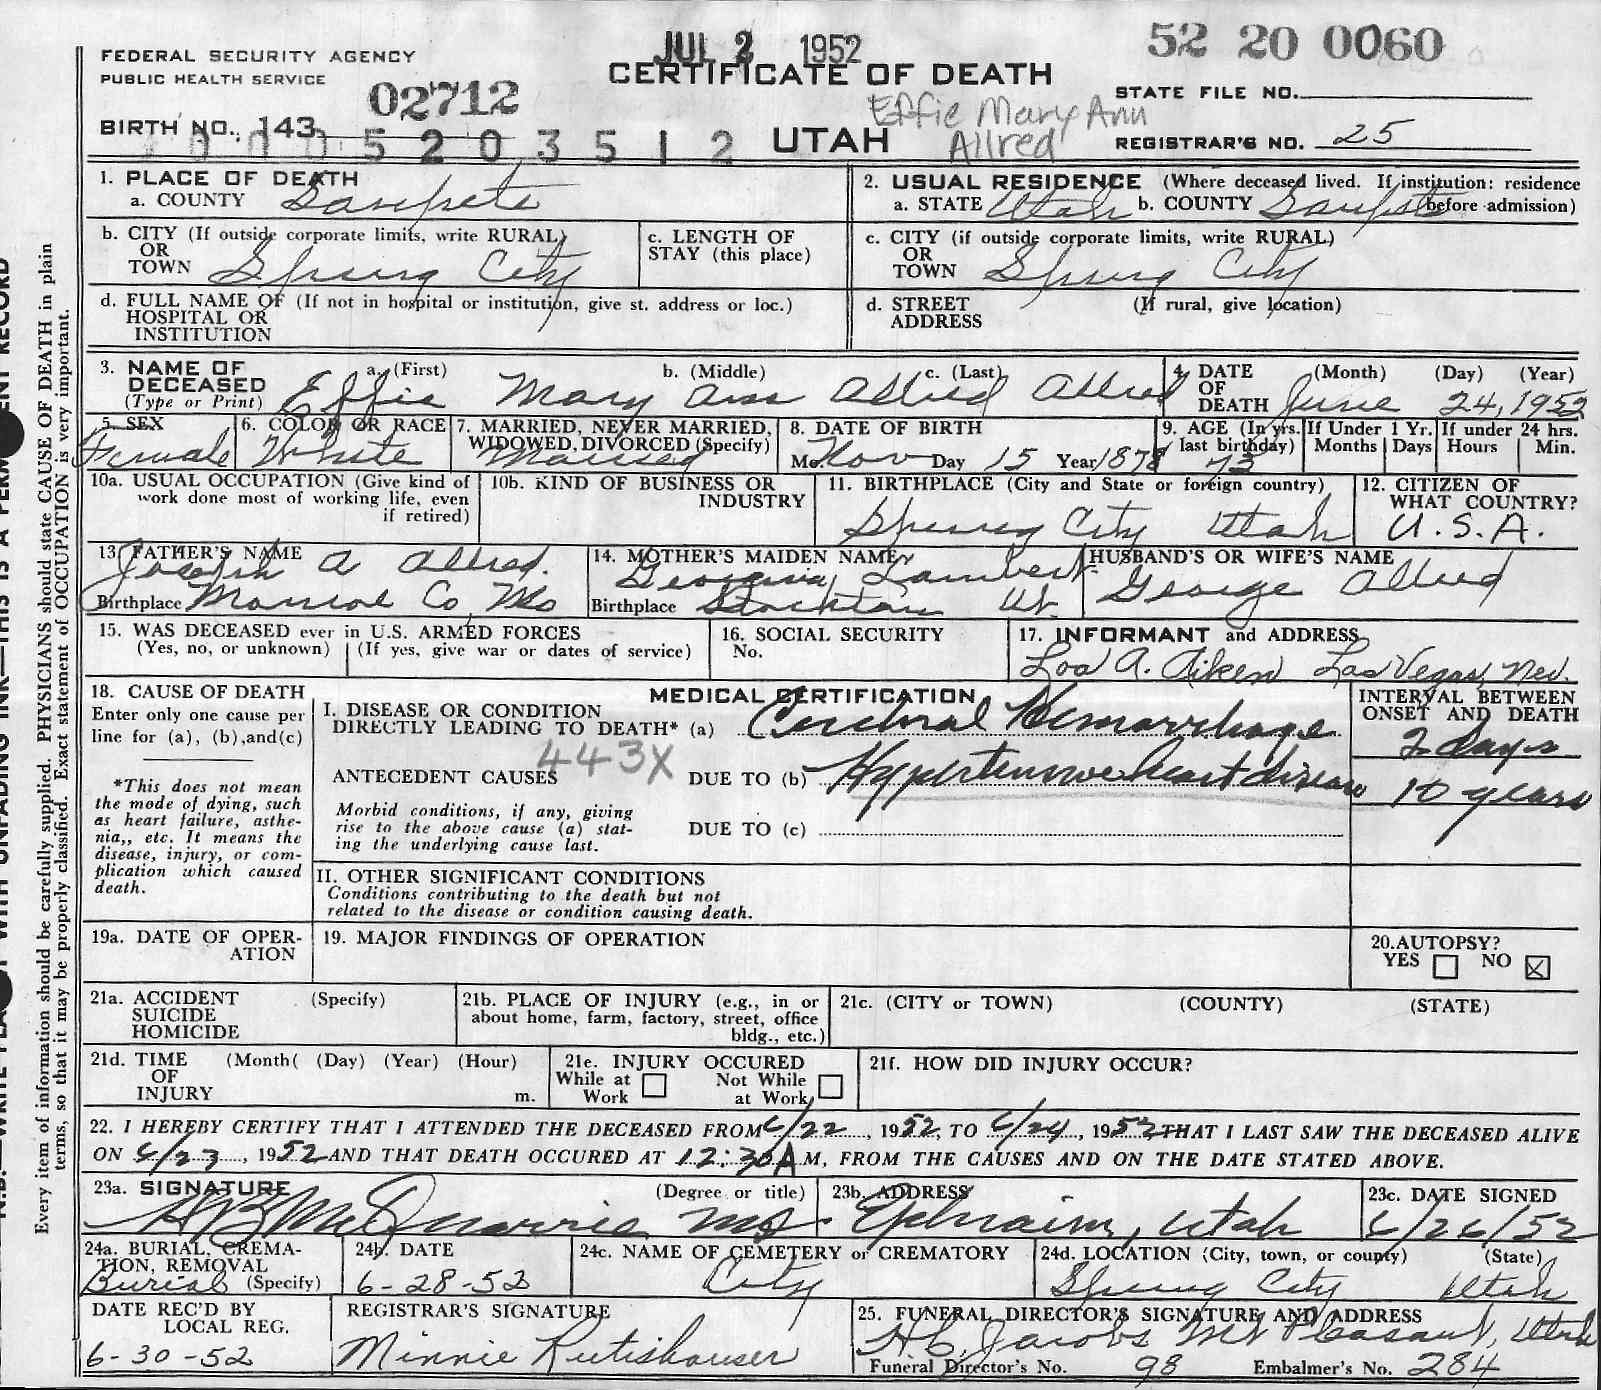 JUL 2 1952
52 20 0060
FEDERAL SECURITY AGENCY
PUBLIC HEALTH SERVICE
CERTIFICATE OF DEATH
02712
STATE FILE NO.
Effie Mary Ann
Allred
BIRTH NO. 143
UTAH
REGISTRAR'S NO. 25
5 2 0 3 5 1 2
1. PLACE OF DEATH
a. COUNTY Sanpete
2. USUAL RESIDENCE (Where deceased lived. If institution: residence before admission)
a. STATE Utah b. COUNTY Sanpete
b. CITY (If outside corporate limits, write RURAL)
OR
TOWN Spring City
c. LENGTH OF
STAY (this place)
c. CITY (if outside corporate limits, write RURAL)
OR
TOWN Spring City
d. FULL NAME OF (If not in hospital or institution, give st. address or loc.)
HOSPITAL OR
INSTITUTION
d. STREET (If rural, give location)
ADDRESS
3. NAME OF DECEASED (Type or Print)
a. (First) b. (Middle) c. (Last)
Effie Mary Ann Allred Allred
4. DATE OF DEATH (Month) (Day) (Year)
June 24, 1952
5. SEX
Female
6. COLOR OR RACE
White
7. MARRIED, NEVER MARRIED,
WIDOWED, DIVORCED (Specify)
Married
8. DATE OF BIRTH
Mo. Nov Day 15 Year 1878
9. AGE (In yrs. last birthday)
73
If Under 1 Yr.
Months Days
If under 24 hrs.
Hours Min.
10a. USUAL OCCUPATION (Give kind of
work done most of working life, even
if retired)
10b. KIND OF BUSINESS OR
INDUSTRY
11. BIRTHPLACE (City and State or foreign country)
Spring City Utah
12. CITIZEN OF
WHAT COUNTRY?
U.S.A.
13. FATHER'S NAME
Joseph A Allred.
Birthplace Monroe Co, Mo
14. MOTHER'S MAIDEN NAME
Georgina Lambert
Birthplace Stockton Ut
HUSBAND'S OR WIFE'S NAME
George Allred
15. WAS DECEASED ever in U.S. ARMED FORCES
(Yes, no, or unknown) (If yes, give war or dates of service)
16. SOCIAL SECURITY
No.
17. INFORMANT and ADDRESS
Loa A. Aiken Las Vegas, Nev.
18. CAUSE OF DEATH
Enter only one cause per
line for (a), (b), and (c)
*This does not mean
the mode of dying, such
as heart failure, asthe-
nia,, etc. It means the
disease, injury, or com-
plication which caused
death.
MEDICAL CERTIFICATION
I. DISEASE OR CONDITION
DIRECTLY LEADING TO DEATH* (a) Cerebral Hemorrhage
443X
ANTECEDENT CAUSES DUE TO (b) Hypertensive heart disease
Morbid conditions, if any, giving
rise to the above cause (a) stat-
ing the underlying cause last.
DUE TO (c)
INTERVAL BETWEEN
ONSET AND DEATH
2 days
10 years
II. OTHER SIGNIFICANT CONDITIONS
Conditions contributing to the death but not
related to the disease or condition causing death.
19a. DATE OF OPER-
ATION
19. MAJOR FINDINGS OF OPERATION
20. AUTOPSY?
YES NO
21a. ACCIDENT (Specify)
SUICIDE
HOMICIDE
21b. PLACE OF INJURY (e.g., in or
about home, farm, factory, street, office
bldg., etc.)
21c. (CITY or TOWN) (COUNTY) (STATE)
21d. TIME (Month( (Day) (Year) (Hour)
OF
INJURY m.
21e. INJURY OCCURED
While at Work Not While at Work
21f. HOW DID INJURY OCCUR?
22. I HEREBY CERTIFY THAT I ATTENDED THE DECEASED FROM 6/22, 1952, TO 6/24, 1952 THAT I LAST SAW THE DECEASED ALIVE
ON 6/23, 1952 AND THAT DEATH OCCURED AT 12:30 A M, FROM THE CAUSES AND ON THE DATE STATED ABOVE.
23a. SIGNATURE (Degree or title)
McQuarrie MD.
23b. ADDRESS
Ephraim, Utah
23c. DATE SIGNED
6/26/52
24a. BURIAL, CREMA-
TION, REMOVAL
Burial (Specify)
24b. DATE
6-28-52
24c. NAME OF CEMETERY or CREMATORY
City
24d. LOCATION (City, town, or county) (State)
Spring City Utah
DATE REC'D BY
LOCAL REG.
6-30-52
REGISTRAR'S SIGNATURE
Minnie Rutishauser
25. FUNERAL DIRECTOR'S SIGNATURE AND ADDRESS
H.C. Jacobs Mt Pleasant, Utah
Funeral Director's No. 98 Embalmer's No. 284
Every item of information should be carefully supplied. PHYSICIANS should state CAUSE OF DEATH in plain
terms, so that it may be properly classified. Exact statement of OCCUPATION is very important.